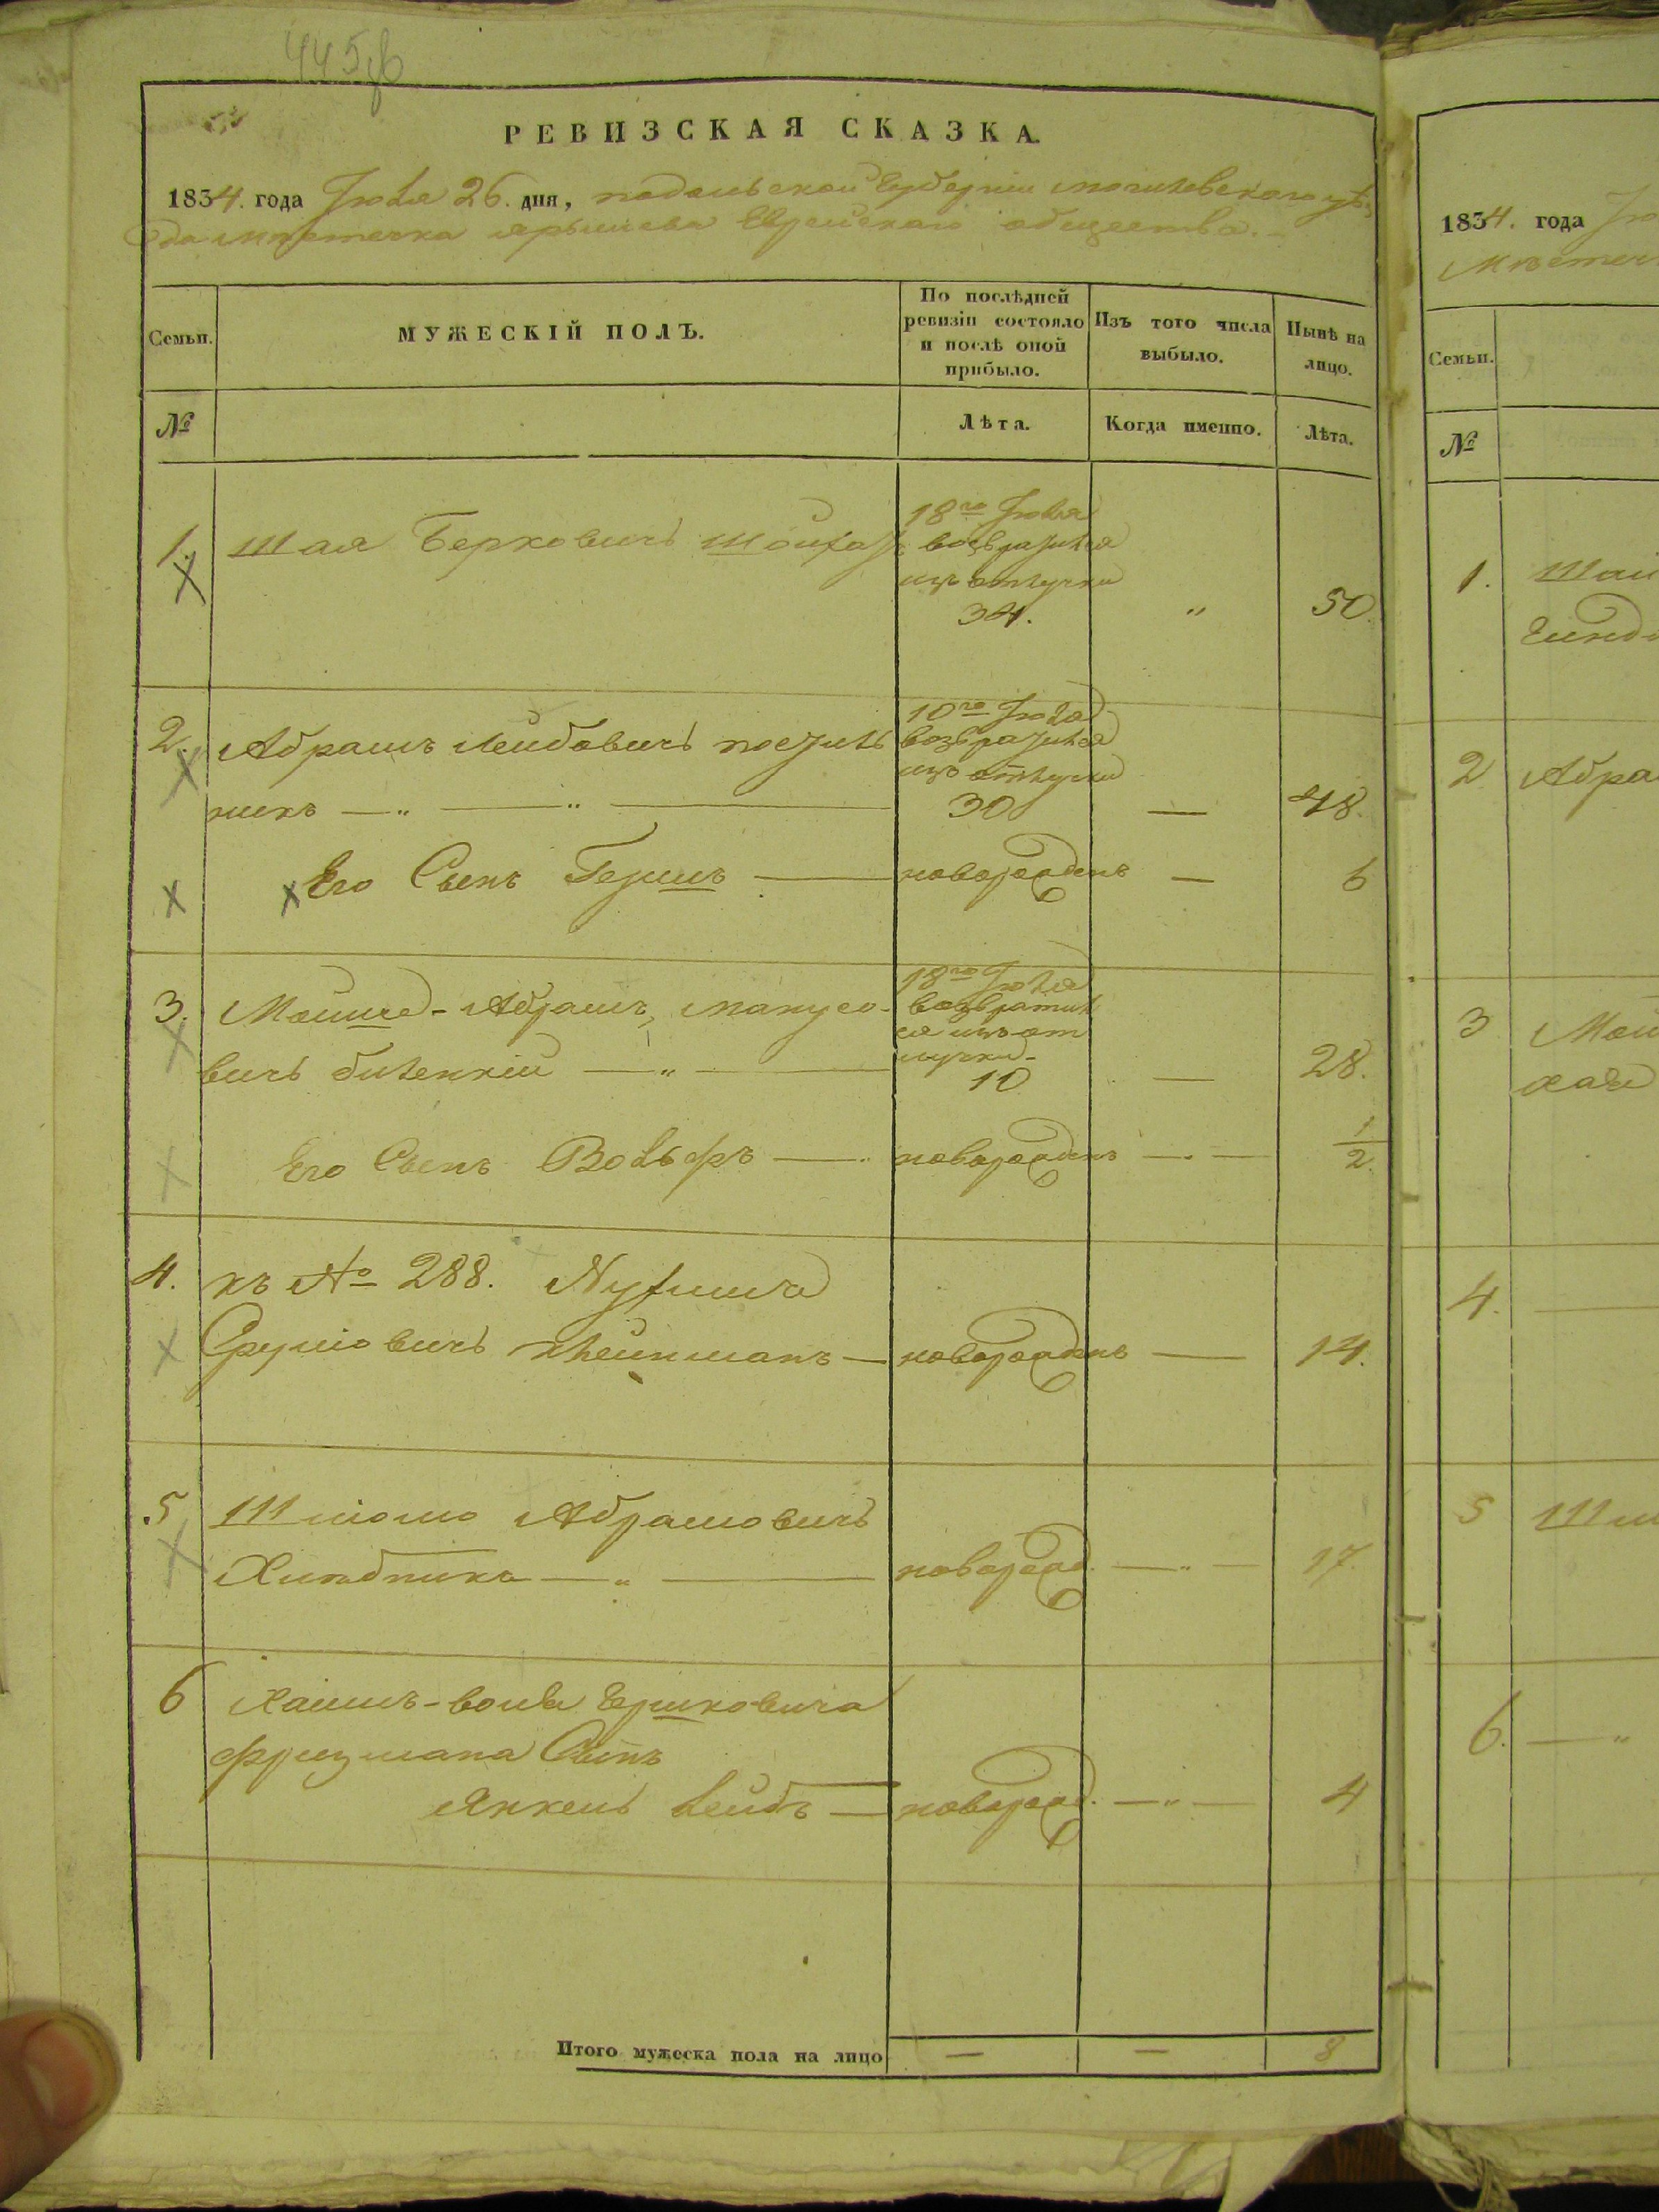 445
РЕВИЗСКАЯ СКАЗКА.
1834. года Июля 26. дня, подольской Губерніи могилевскаго уѣз
да мѣстечка ярышева Еврейскаго общества.
Семьи.
МУЖЕСКІЙ ПОЛЪ.
По послѣдней
ревизіи состояло
и послѣ оной
прибыло.
Изъ того числа
выбыло.
Нынѣ на
лицо.
№
Лѣта.
Когда именно.
Лѣта.
1. Шая Берковичъ
18го Июля
возвратился
изъ отлучки
34. " 50.
2. Абрамъ Лейбовичъ
никъ — " — " —
10го Июля
возвратился
изъ отлучки
30 — 48.
Его Сынъ Гершъ — новорожденъ — 6
3. Мойше-Абрамъ, Манусо-
вичъ биленкій — " —
18го Июля
возвратил
ся изъ от
лучки
10 — 28.
Его Сынъ Вольфъ — новорожденъ — 1/2.
4. къ № 288.
Сруліовичъ клейнманъ — новорожденъ — 14.
5 Шліомо Абрамовичъ
— " — новорожд. — " — 17.
6 Хаимъ-вольв Гершковича
Сынъ
Янкель Лейбъ — новорожд. — " — 4
Итого мужеска пола на лицо — — 8
1834. года Ию
мѣстеч
Семьи.
№
1. Шаи
2 Абра
3 Мой
хая
4. —
5 Шл
6. — "